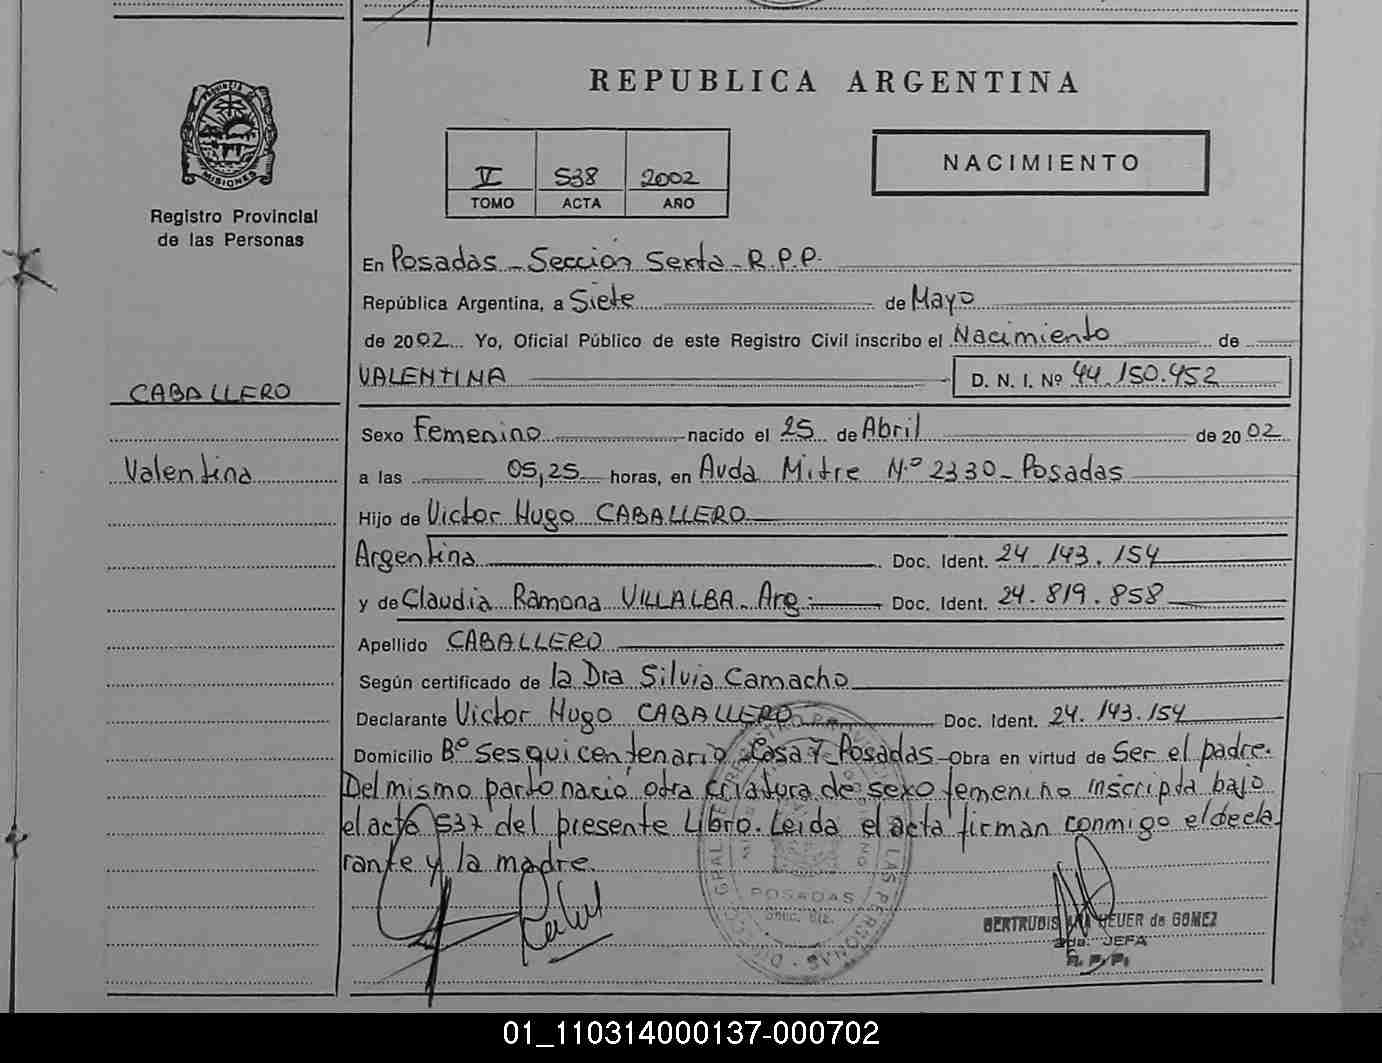 REPUBLICA ARGENTINA
PROVINCIA DE
MISIONES
Registro Provincial
de las Personas
V 538 2002
TOMO ACTA AÑO
NACIMIENTO
En Posadas - Sección Sexta - R.P.P.
República Argentina, a Siete de Mayo
de 2002 Yo, Oficial Público de este Registro Civil inscribo el Nacimiento de
VALENTINA D. N. I. Nº 44.150.452
CABALLERO
Valentina
Sexo Femenino nacido el 25 de Abril de 2002
a las 05,25 horas, en Avda Mitre Nº 2330 - Posadas
Hijo de Victor Hugo CABALLERO
Argentina Doc. Ident. 24.143.154
y de Claudia Ramona VILLALBA - Arg. Doc. Ident. 24.819.858
Apellido CABALLERO
Según certificado de la Dra Silvia Camacho
Declarante Victor Hugo CABALLERO Doc. Ident. 24.143.154
Domicilio Bº Sesquicentenario Casa 7 Posadas Obra en virtud de Ser el padre.
Del mismo parto nació otra criatura de sexo femenino inscripta bajo
el acta 537 del presente Libro. Leida el acta firman conmigo el decla
rante y la madre.
POSADAS
LAS PERSONAS
GERTRUDIS HEUER de GOMEZ
2da. JEFA
R. P. P.
01_110314000137-000702